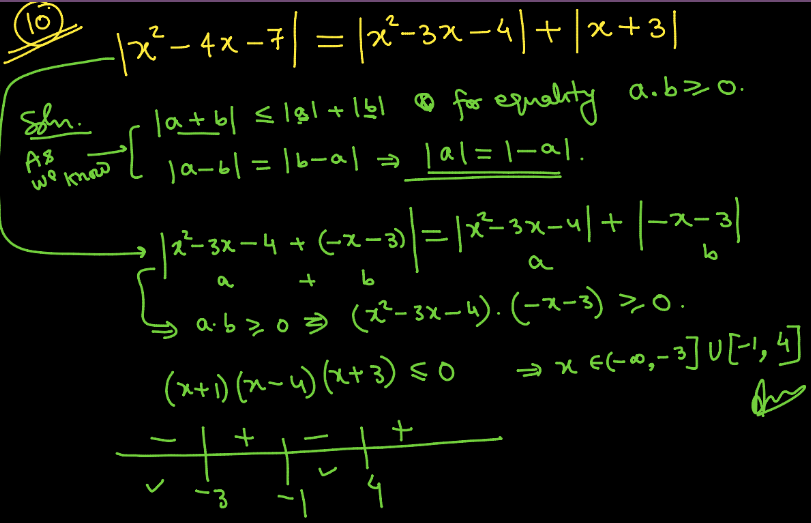 10.
|x²-4x-7| = |x²-3x-4| + |x+3|
Soln.
As we know
|a+b| ≤ |a|+|b| for equality a.b ≥ 0.
|a-b| = |b-a| ⇒ |a| = |-a|.
|x²-3x-4+(-x-3)| = |x²-3x-4| + |-x-3|
a + b a b
⇒ a.b ≥ 0 ⇒ (x²-3x-4).(-x-3) ≥ 0.
(x+1)(x-4)(x+3) ≤ 0 ⇒ x ∈ (-∞,-3] ∪ [-1, 4]
Ans
- + - +
✓ -3 -1 ✓ 4